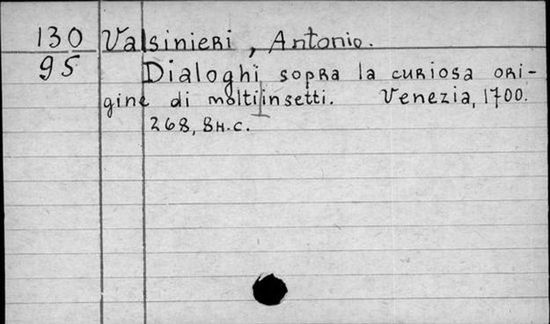 130 Valsinieri, Antonio.
95 Dialoghi sopra la curiosa ori-
gine di molti insetti. Venezia, 1700.
268, 8н.c.